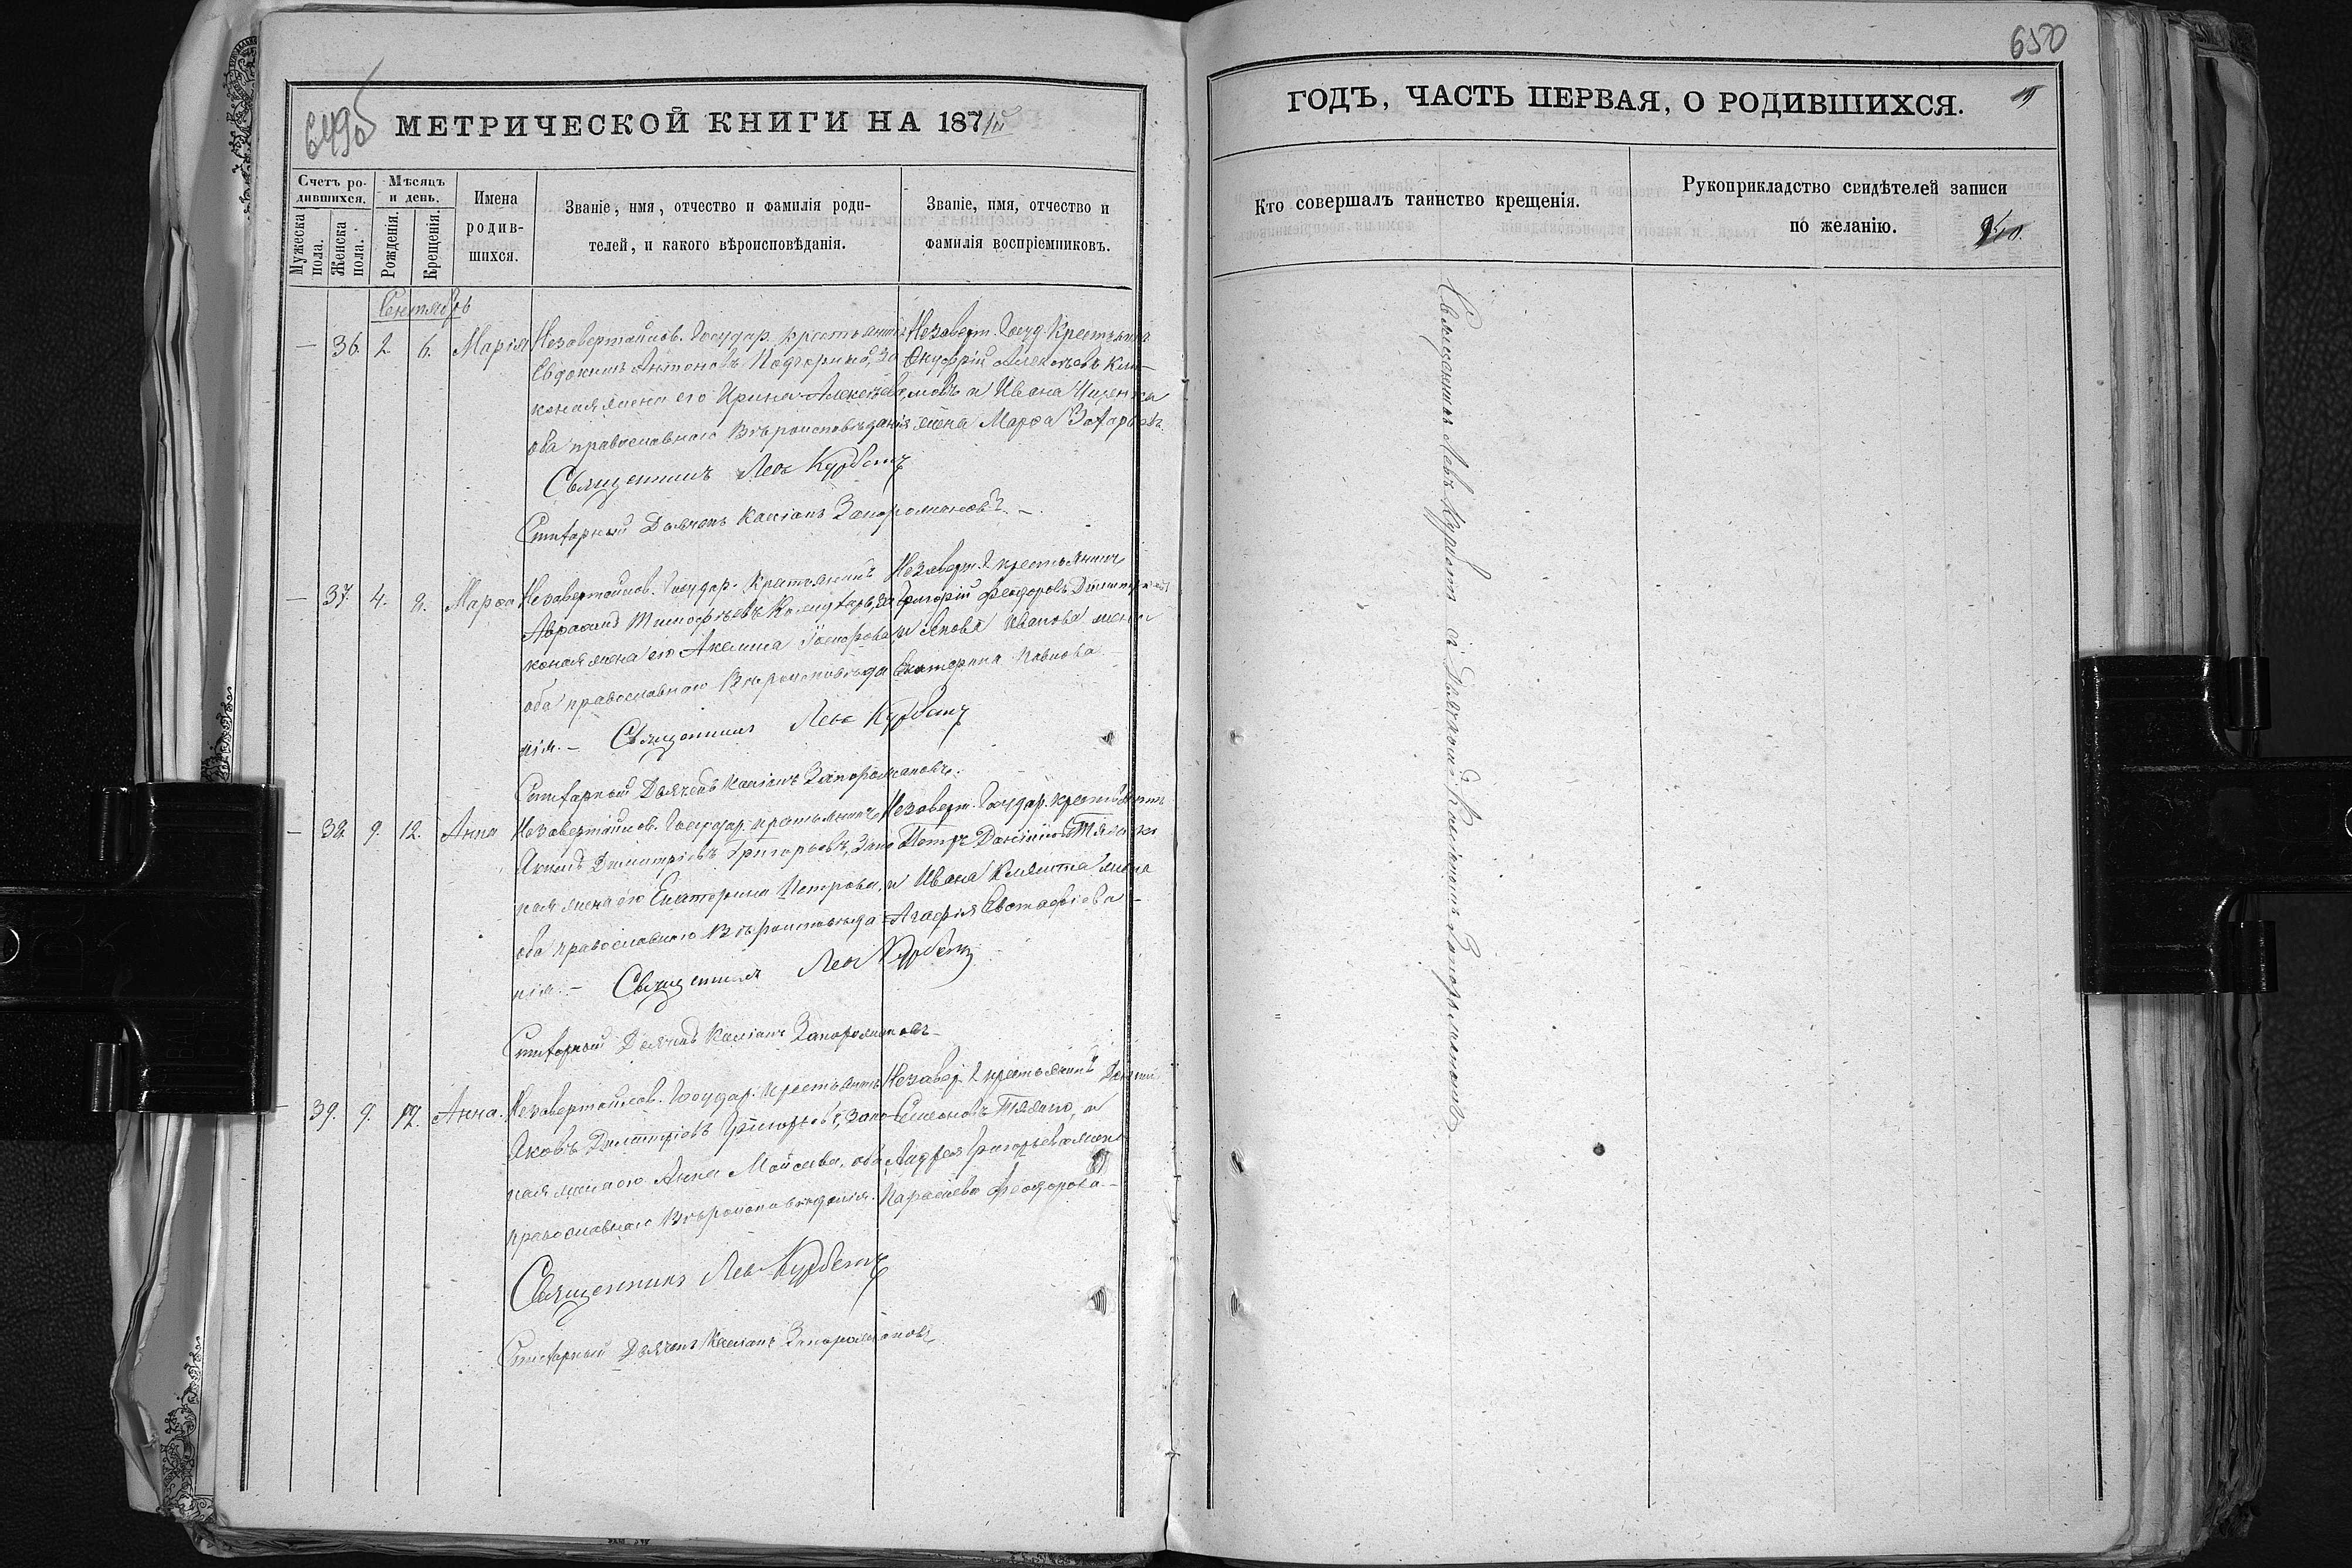 649об
МЕТРИЧЕСКОЙ КНИГИ НА 1871й
Счетъ ро-
дившихся.
Мужеска
пола.
Женска
пола.
Мѣсяцъ
и день.
Рожденія.
Крещенія.
Имена
родив-
шихся.
Званіе, имя, отчество и фамилія роди-
телей, и какого вѣроисповѣданія.
Званіе, имя, отчество и
фамилія воспріемниковъ.
Сентябрь
— 36. 2. 6. Марія
Незавертайлов. Государ. крестьянинъ
Евдокимъ Антоновъ Подгорный, за
конная жена его Ирина Алексѣева,
оба православнаго Вѣроисповѣданія
Незаверт. Госуд. Крестьянинъ
Онуфрій
и Ивана
жена Марѳа Захарьева.
Священникъ Левъ Курбетъ
Стихарный Дьячекъ Касіанъ Запорожановъ. –
— 37. 4. 8. Марѳа
Незавертайлов. Государ. Крестьянинъ
Аврамъ Тимофѣевъ за
конная жена его Акелина
оба православнаго Вѣроисповѣда
нія. –
Незаверт. Г. крестьянинъ
Григорій Феодоровъ
и Якова Иванова жена
Екатерина Павлова
Священникъ Левъ Курбетъ
Стихарный Дьячекъ Касіанъ Запорожановъ.
— 38. 9. 12. Анна
Незавертайлов. Государ. крестьянинъ
Якимъ Димитріевъ Григорьевъ, закон
ная жена его Екатерина Петрова,
оба православнаго Вѣроисповѣда
нія. –
Незаверт. Государ. крестьянинъ
Петръ
и Ивана жена
Агафія Евстафіева –
Священникъ Левъ Курбетъ
Стихарный Дьячекъ Касіанъ Запорожановъ
— 39. 9. 12. Анна.
Незавертайлов. Государ. Крестьянинъ
Яковъ Димитріевъ Григорьевъ, закон
ная жена его Анна Мойсеева, оба
православнаго Вѣроисповѣданія.
Незавер. Г. крестьянинъ
Симеоновъ и
Андрея Григорьева жена
Параскева Феодорова –
Священникъ Левъ Курбетъ
Стихарный Дьячекъ Касіанъ Запорожановъ
650
ГОДЪ, ЧАСТЬ ПЕРВАЯ, О РОДИВШИХСЯ.
Кто совершалъ таинство крещенія.
Рукоприкладство свидѣтелей записи
по желанію.
Священникъ Левъ Курбетъ съ Дьячкомъ Касіаномъ Запорожановымъ